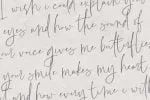 I wish I could explain your
eyes and how the sound of
your voice gives me butterflies
your smile makes my heart
and how every time I will